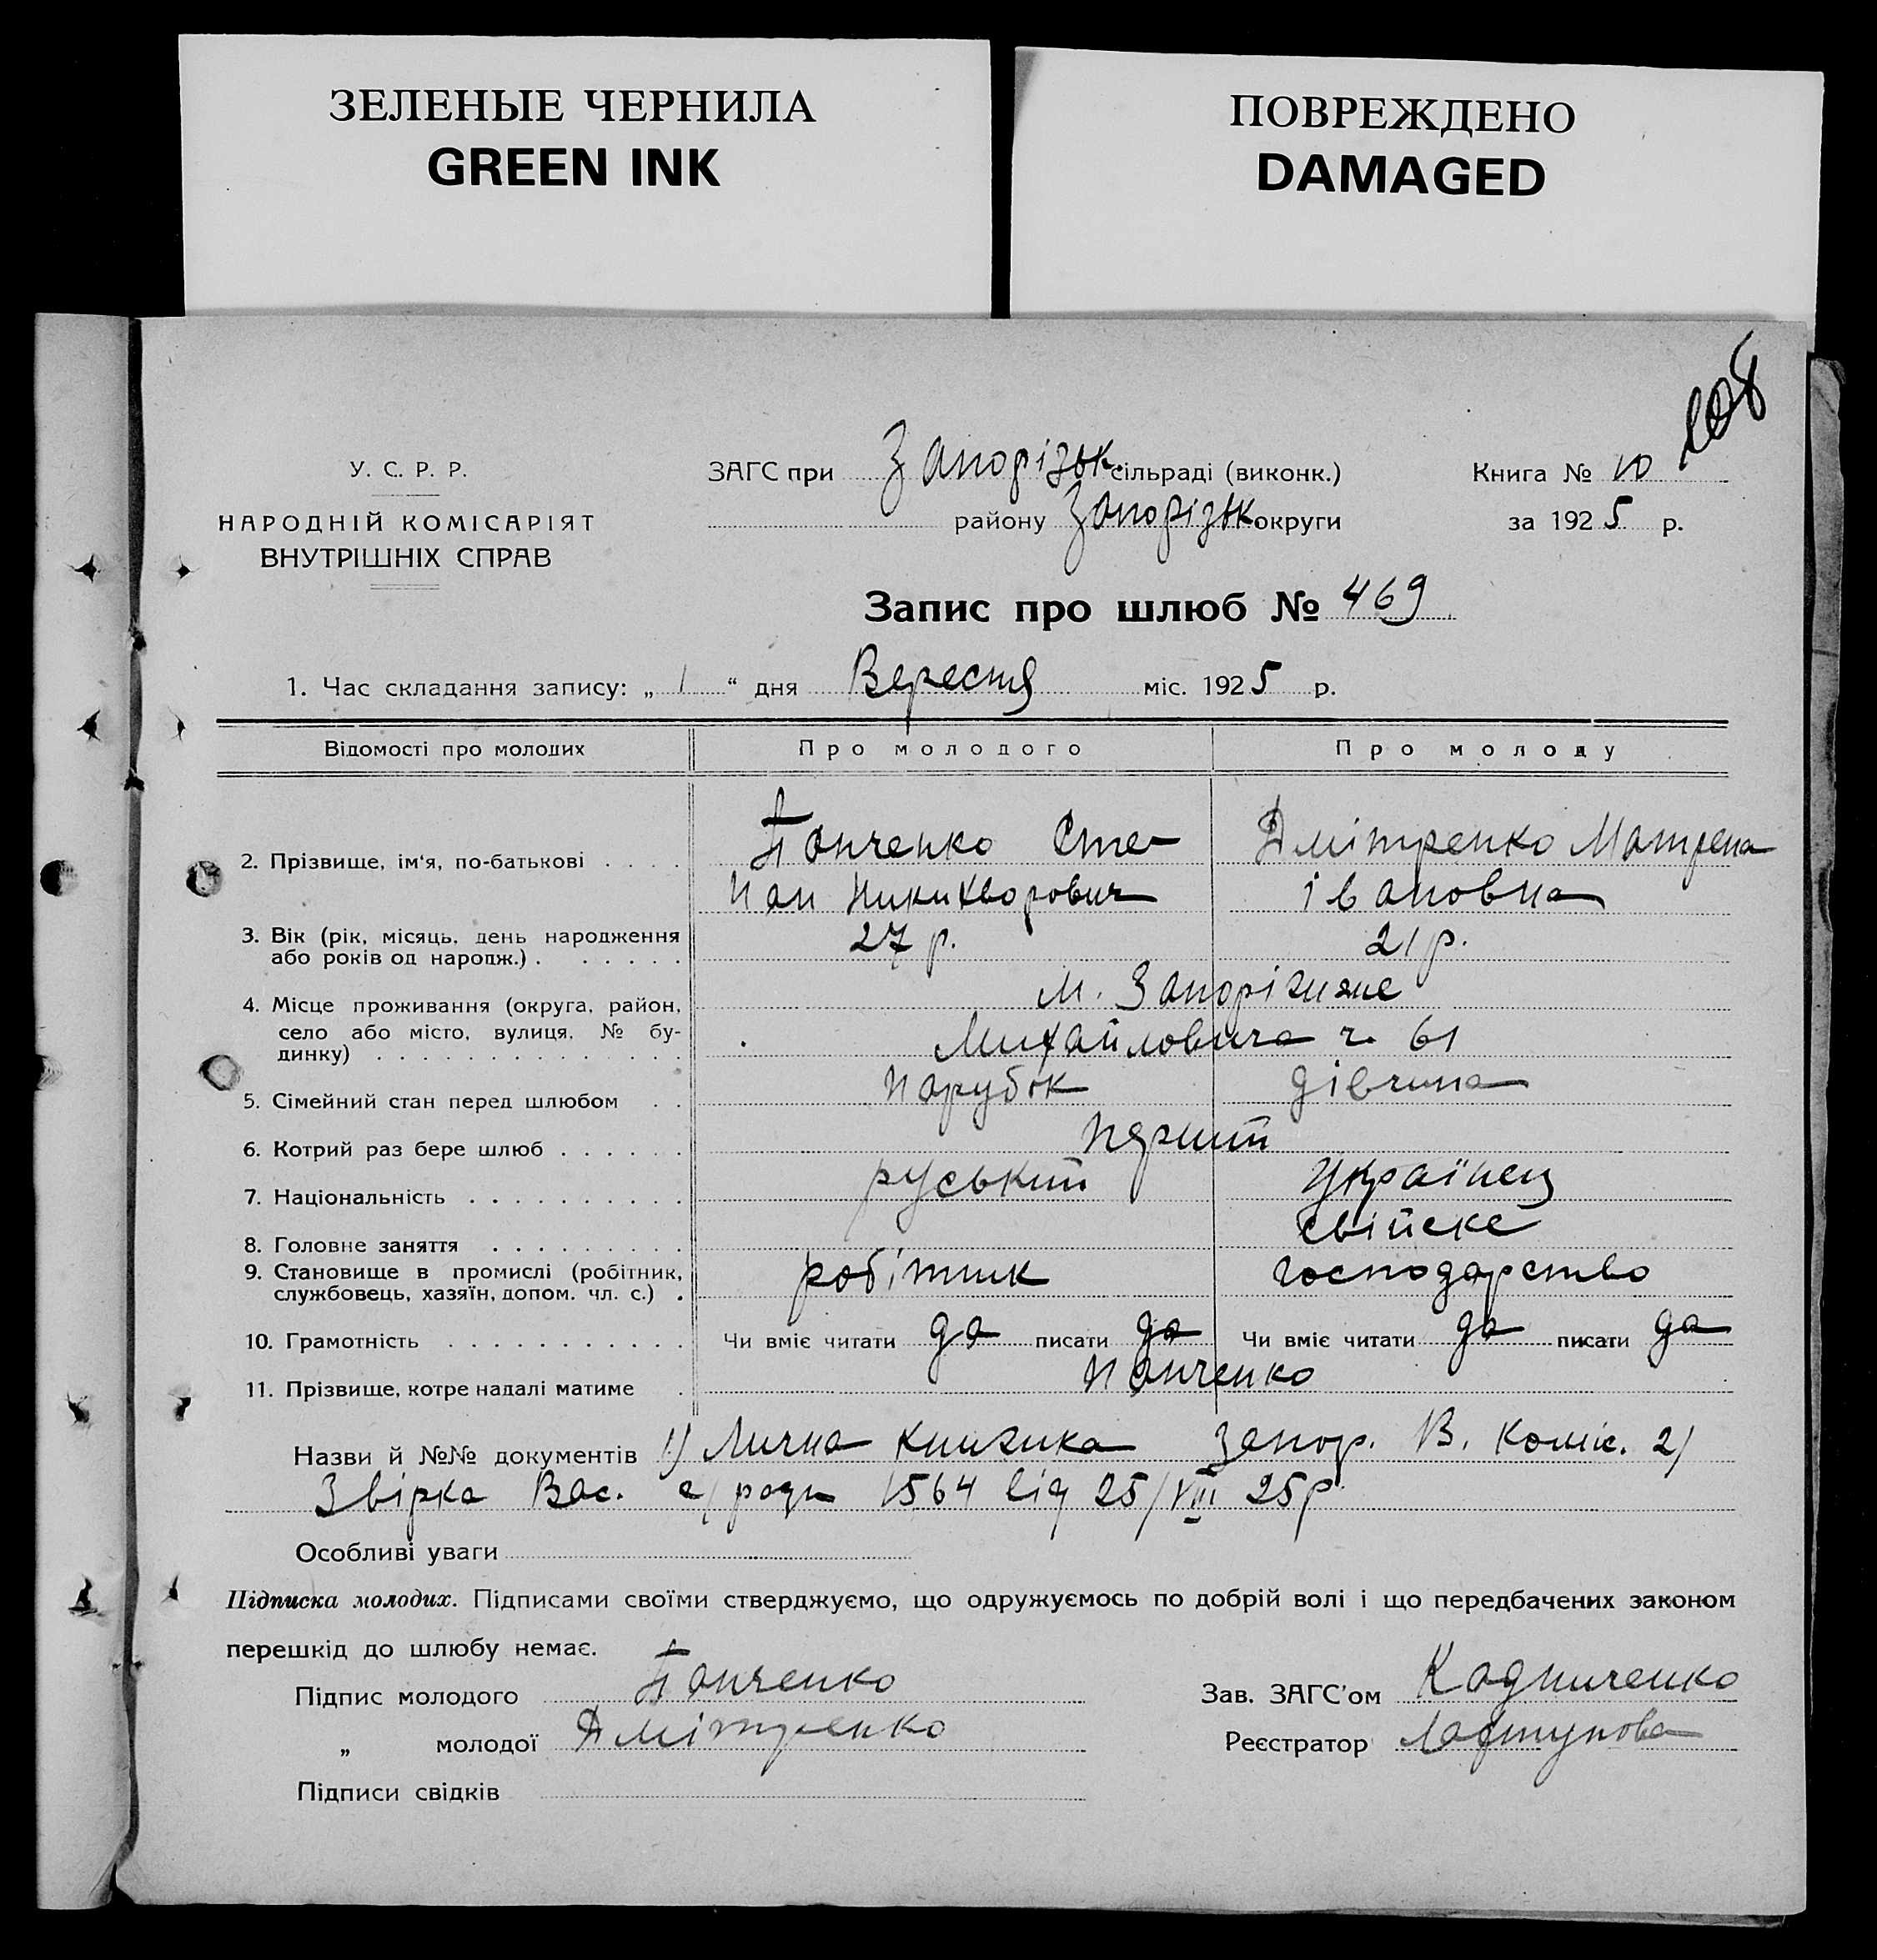 ЗЕЛЕНЫЕ ЧЕРНИЛА
GREEN INK
ПОВРЕЖДЕНО
DAMAGED
У. С. Р. Р.
НАРОДНІЙ КОМІСАРІЯТ
ВНУТРІШНІХ СПРАВ
ЗАГС при Запорізьк. сільраді (виконк.)
району Запорізьк округи
Книга № 10
за 1925 р.
Запис про шлюб № 469
1. Час складання запису: „ 1 “ дня Вересня міс. 1925 р.
Відомості про молодих Про молодого Про молоду
2. Прізвище, ім‘я, по-батькові . . . . Панченко Сте- Дмітренко Матрена
пан Никихворович івановна
3. Вік (рік, місяць, день народження 27 р. 21 р.
або років од народж.) . . . . . .
4. Місце проживання (округа, район, м. Запоріжжє
село або місто, вулиця, № бу- Михайловича ч. 61
динку) . . . . . . . . . . . . . .
5. Сімейний стан перед шлюбом . . парубок дівчина
6. Котрий раз бере шлюб . . . . . . перший
7. Національність . . . . . . . . . . руський Українец
8. Головне заняття . . . . . . . . . свійске
9. Становище в промислі (робітник, робітник господарство
службовець, хазяїн, допом. чл. с.) .
10. Грамотність . . . . . . . . . . . Чи вміє читати да писати да Чи вміє читати да писати да
11. Прізвище, котре надалі матиме . Панченко
Назви й №№ документів 1) Лична книжка Запор. В. Коміс. 2)
Звірка Вас. с/ради 1564 від 25/VIII 25р.
Особливі уваги
Підписка молодих. Підписами своїми стверджуємо, що одружуємось по добрій волі і що передбачених законом
перешкід до шлюбу немає.
Підпис молодого Панченко
„ молодої Дмітренко
Підписи свідків
Зав. ЗАГС’ом
Реєстратор